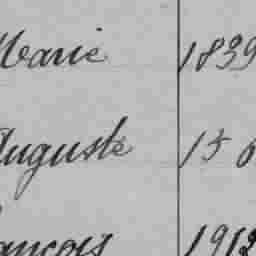 Marie 1839
Auguste
ançois 1912